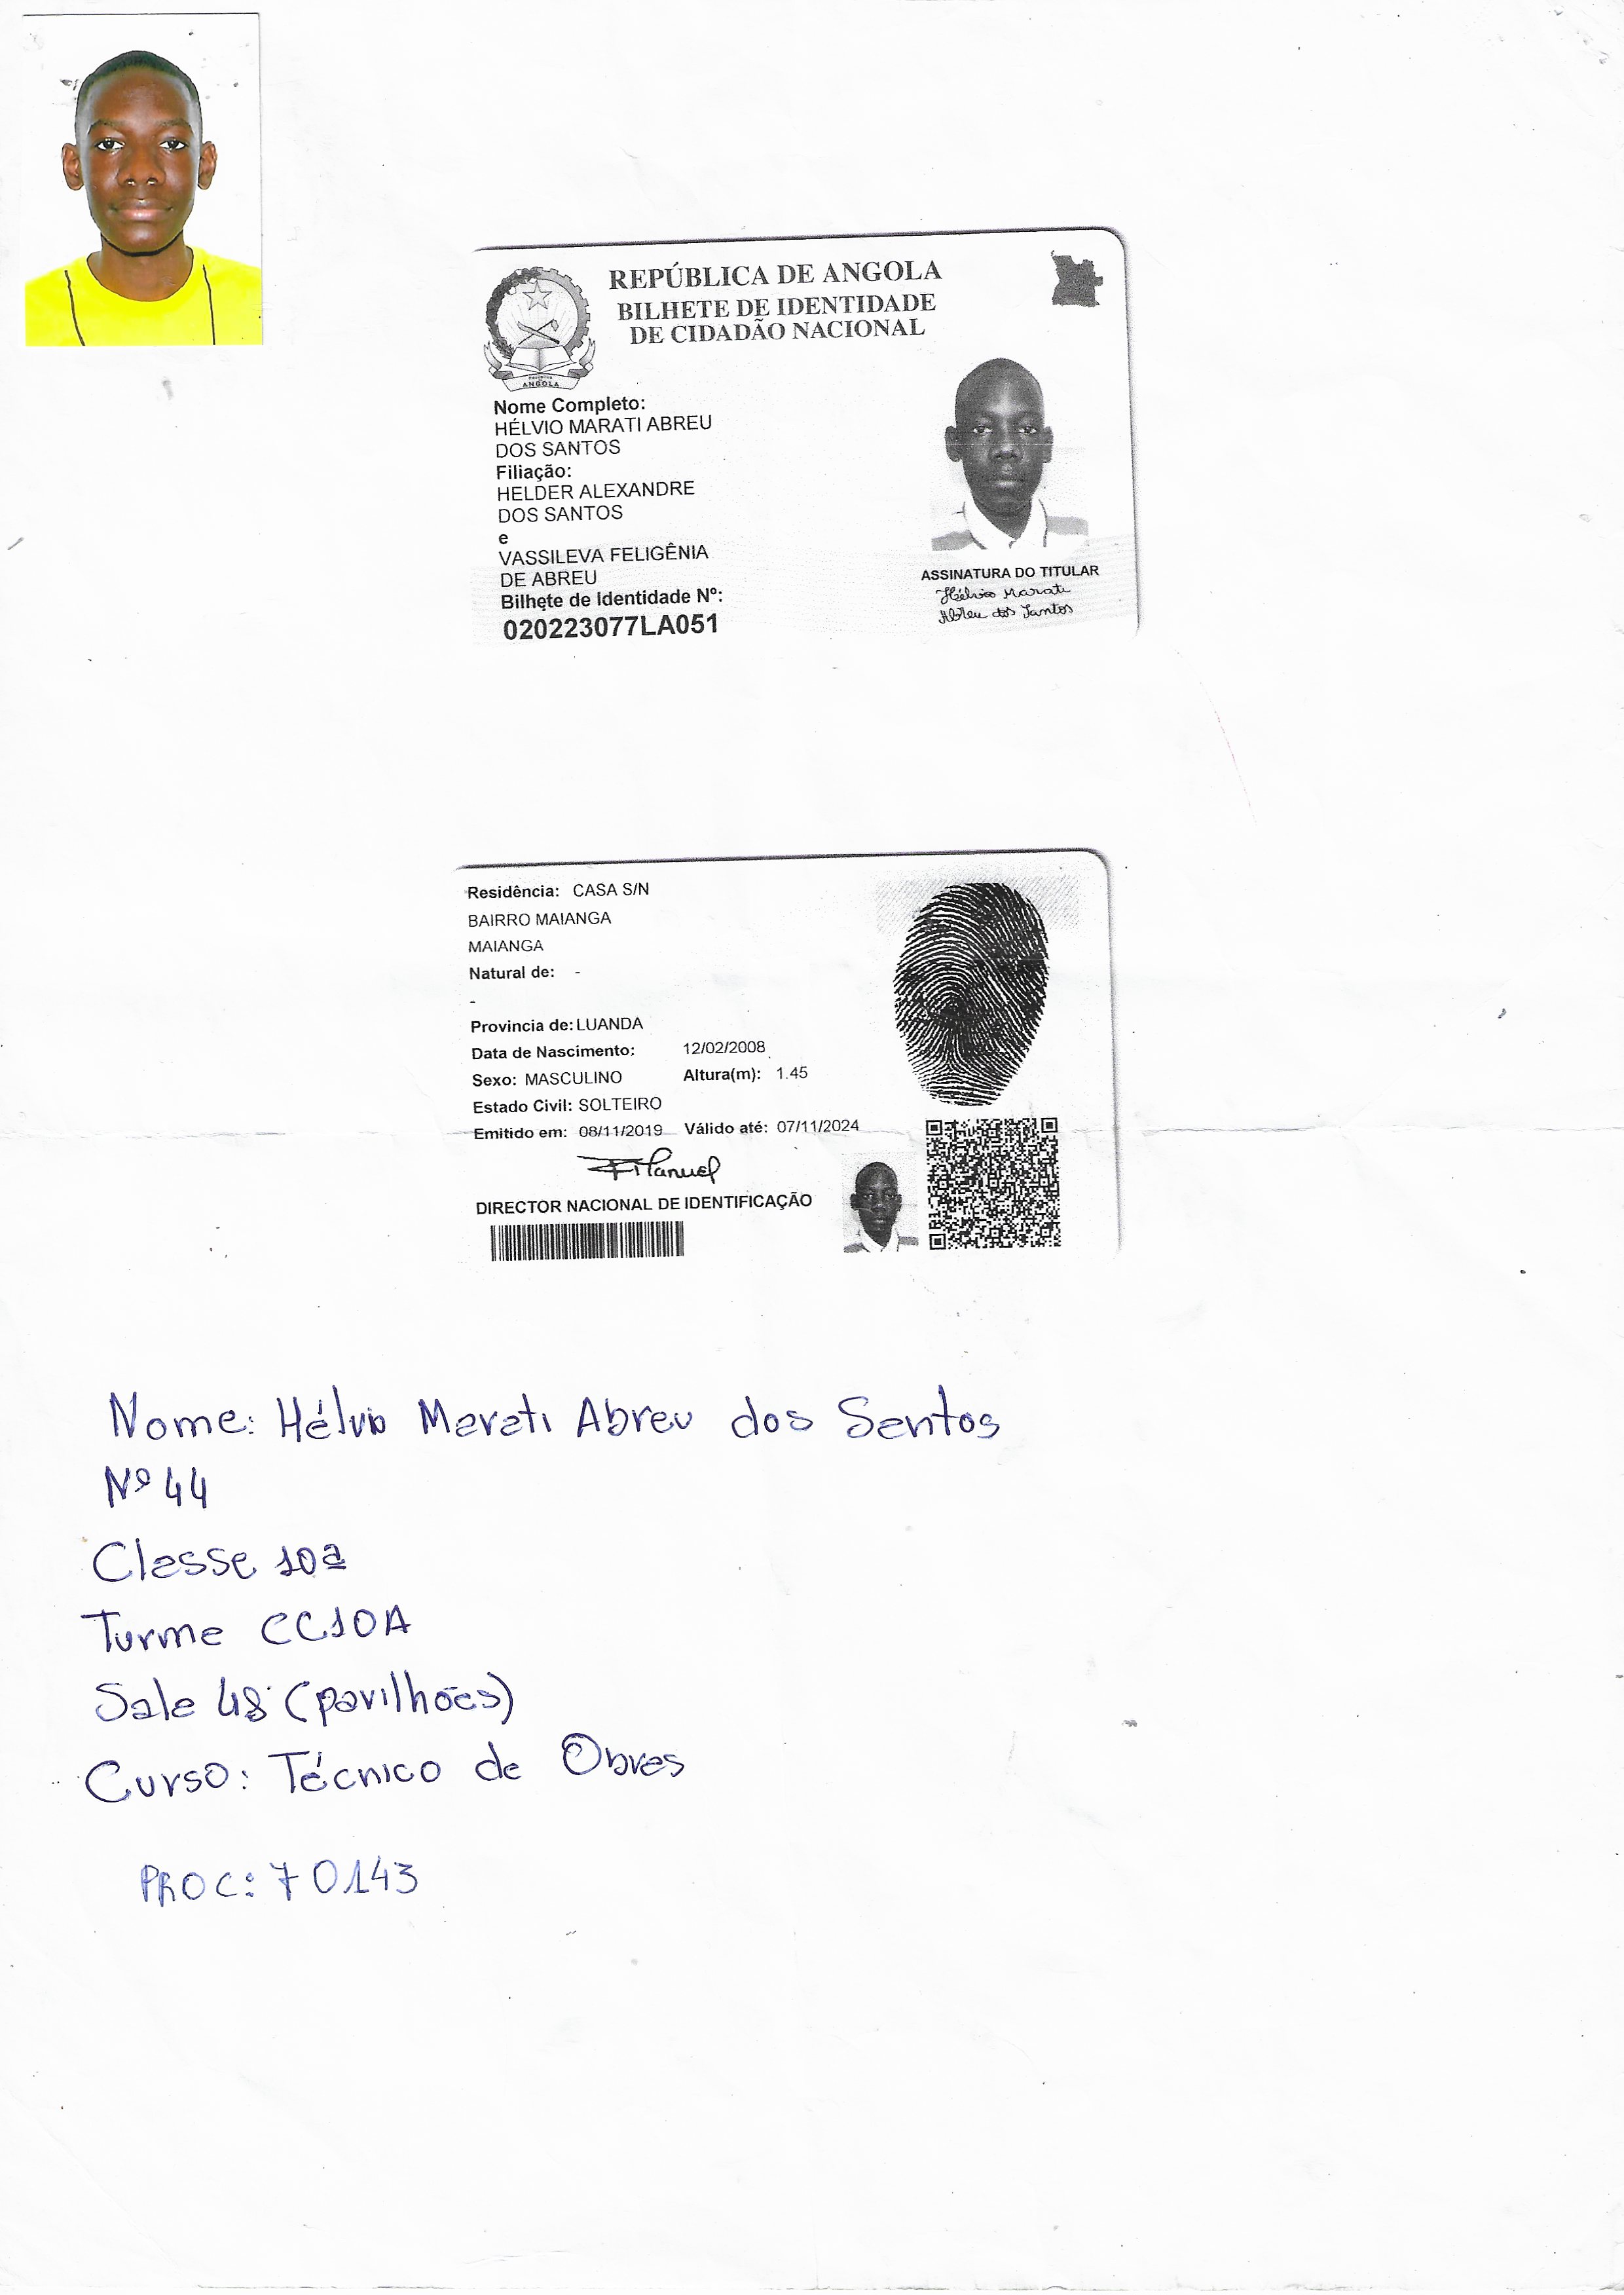 REPÚBLICA DE ANGOLA
BILHETE DE IDENTIDADE
DE CIDADÃO NACIONAL
ANGOLA
Nome Completo:
HÉLVIO MARATI ABREU
DOS SANTOS
Filiação:
HELDER ALEXANDRE
DOS SANTOS
e
VASSILEVA FELIGÊNIA
DE ABREU
Bilhete de Identidade Nº:
020223077LA051
ASSINATURA DO TITULAR
Hélvio Marati
Abreu dos Santos
Residência: CASA S/N
BAIRRO MAIANGA
MAIANGA
Natural de: -
-
Provincia de: LUANDA
Data de Nascimento: 12/02/2008
Sexo: MASCULINO Altura(m): 1.45
Estado Civil: SOLTEIRO
Emitido em: 08/11/2019 Válido até: 07/11/2024
DIRECTOR NACIONAL DE IDENTIFICAÇÃO
Nome: Hélvio Marati Abreu dos Santos
Nº 44
Classe 10ª
Turma CC10A
Sala 48 (pavilhões)
Curso: Técnico de Obras
PROC: 70143